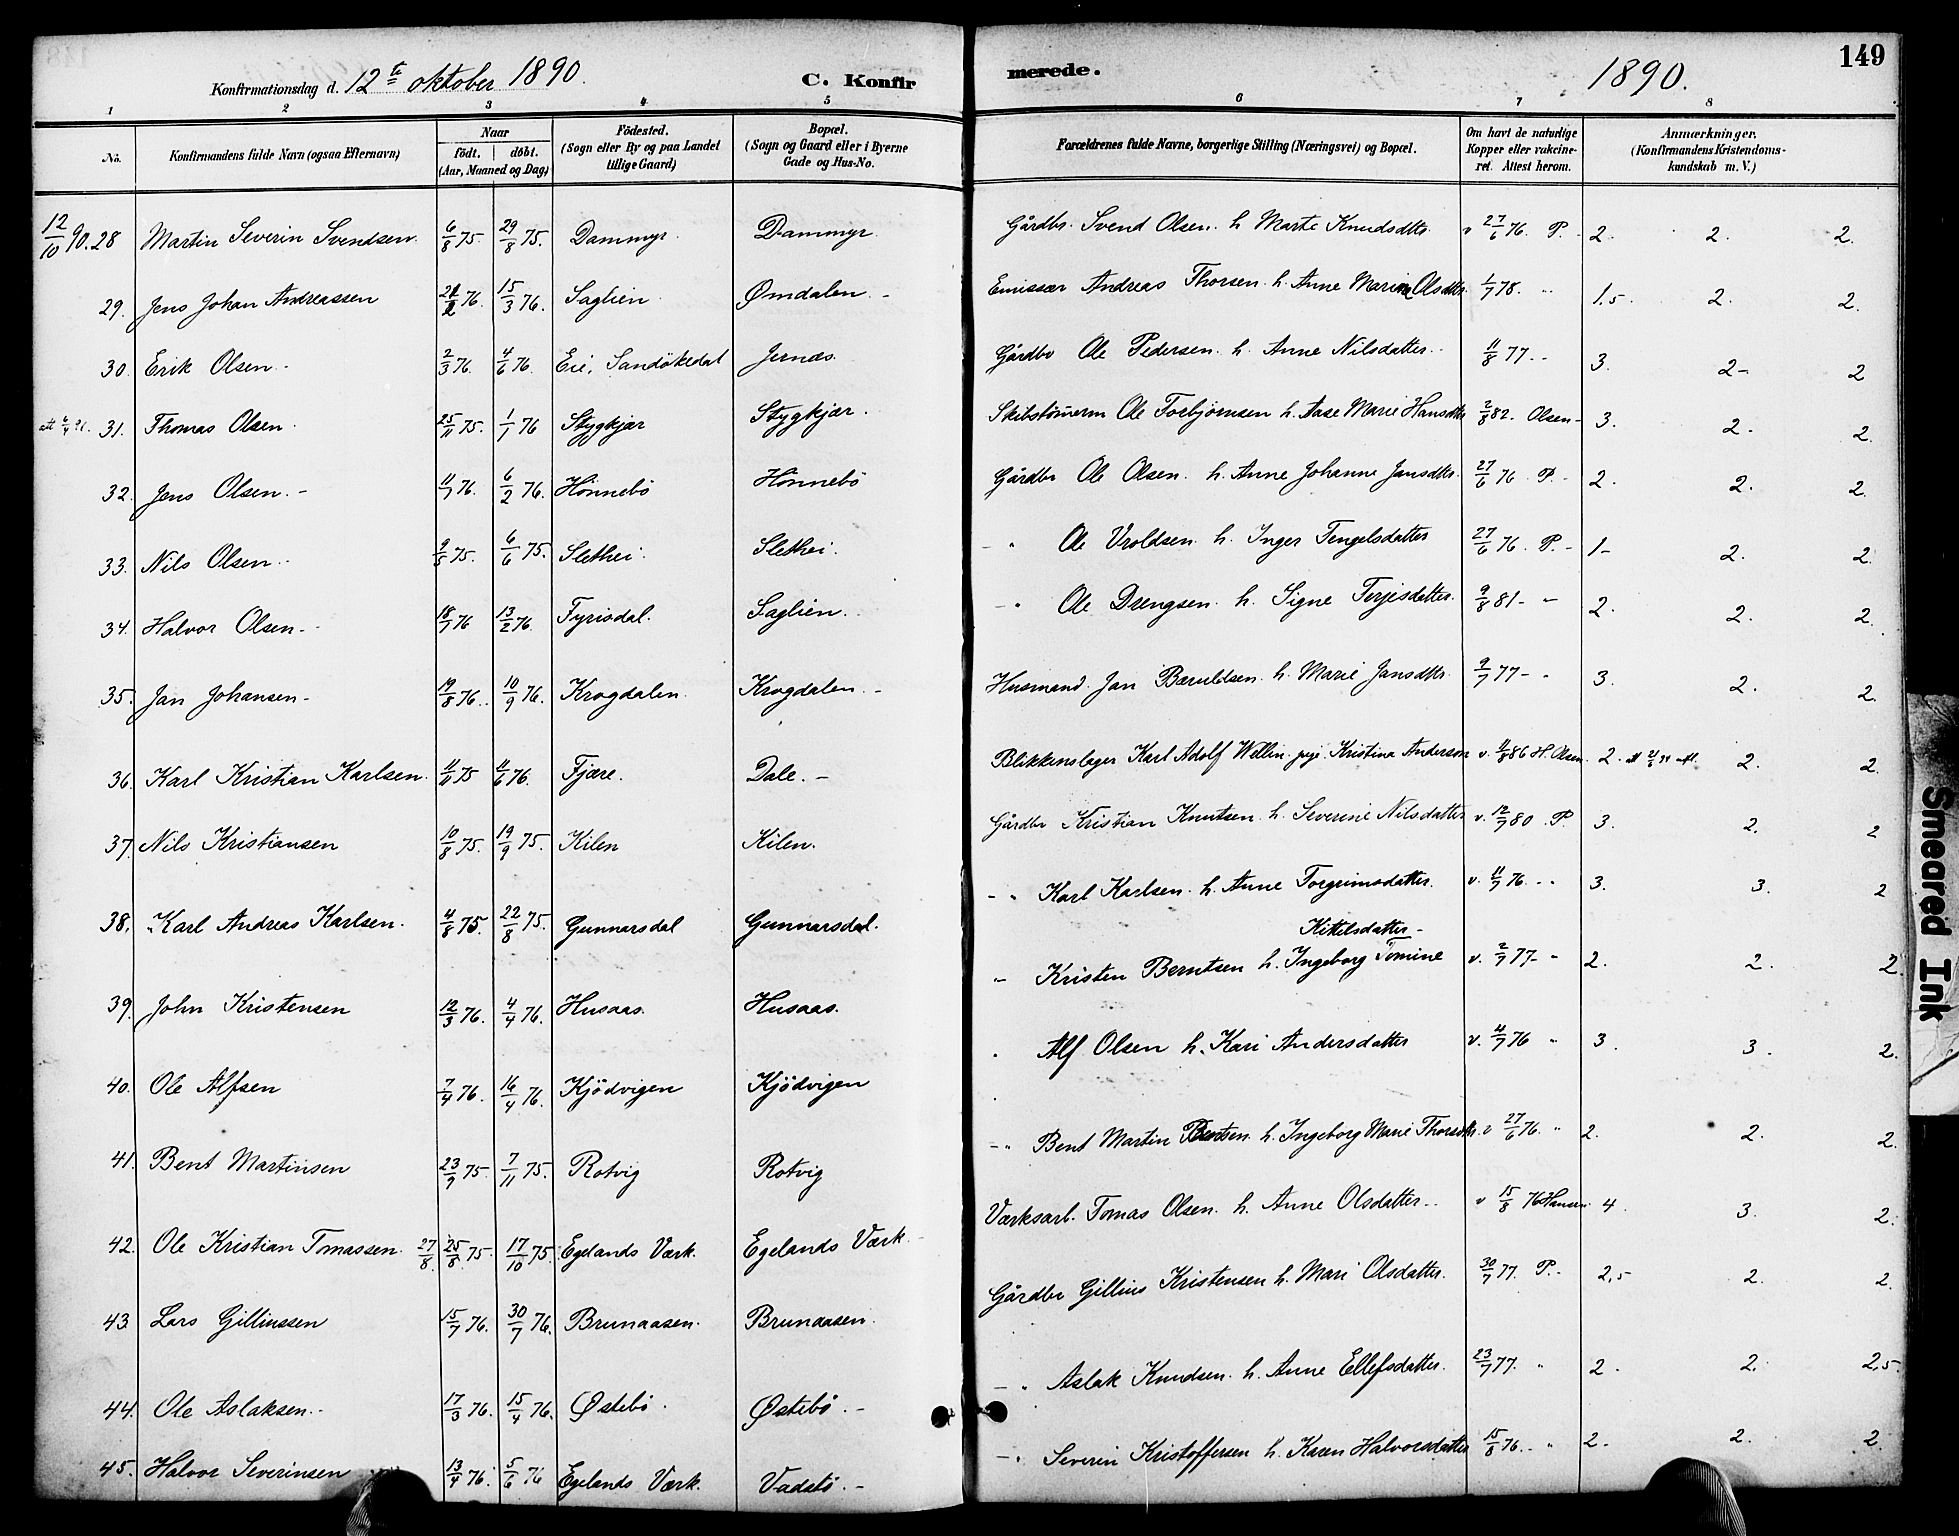 149
Konfirmationsdag d. 12te oktober 1890. C. Konfir
merede. 1890.
1 2 3 4 5 6 7 8
No. Konfirmandens fulde Navn (ogsaa Efternavn) Naar födt. döbt. (Aar, Maaned og Dag) Födested. (Sogn eller By og paa Landet tillige Gaard) Bopæl. (Sogn og Gaard eller i Byerne Gade og Hus-No. Forældrenes fulde Navne, borgerlige Stilling (Næringsvei) og Bopæl. Om havt de naturlige Kopper eller vakcineret. Attest herom. Anmærkninger. (Konfirmandens Kristendomskundskab m. V.)
12/10 90. 28 Martin Severin Svendsen. 6/8 75. 29/8 75. Dammyr. Dammyr. Gårdbr. Svend Olsen. h. Marte Knudsdtr. v 27/6 76. P. 2. 2. 2.
29. Jens Johan Andreassen 76. 15/3 76. Saglien. Ømdalen. Emissær Andreas Thorsen. h. Anne Marine Olsdtr. 1/7 78. " 1.5. 2. 2.
30. Erik Olsen. 2/3 76. 4/6 76. Eie, Sandökedal Jernæs. Gårdbr Ole Pedersen. h. Anne Nilsdatter. 11/8 77. 3. 2- 2
31. Thomas Olsen. 25/11 75. 1/1 76 Stygkjær Stygkjær. Skibstömerm Ole Torbjörnsen h. Aase Marie Hansdtr 2/8 82. Olsen- 3. 2. 2.
32. Jens Olsen. 11/1 76. 6/2 76. Hönnebö Hönnebö Gårdbr Ole Olsen. h. Anne Johanne Jansdtr. 27/6 76. P. 2. 2. 2.
33. Nils Olsen. 75. 6/6 75. Slethei. Slethei. " Ole Vroldsen. h. Inger Tengelsdatter 27/6 76. P. 1- 2. 2.
34. Halvor Olsen. 18/1 76 13/2 76. Fyrisdal. Saglien. " Ole Drengsen. h. Signe Terjesdatter. 9/8 81- " 2. 2. 2.
35. Jan Johansen- 19/8 76. 10/9 76. Krogdalen. Krogdalen. Husmand. Jan Baruldsen. h. Marie Jansdtr. 9/7 77- " 3. 2. 2.
36. Karl Kristian Karlsen. 11/11 75 11/6 76. Fjære. Dale. Blikkenslager Karl Adolf Wellin. pige. Kristina Anderson v. 11/8 86 H. Olsen. 2. 2. 2.
37. Nils Kristiansen 10/8 75. 19/9 75. Kilen Kilen. Gårdbr Kristian Knutsen. h. Severine Nilsdatter v. 12/7 80. P. 3. 2. 2
38. Karl Andreas Karlsen. 4/8 75. 22/8 75. Gunnarsdal Gunnarsdal. " Karl Karlsen. h. Anne Torgrimsdatter. v. 11/7 76. " 3. 3. 2
39. John Kristensen 12/3 76. 4/4 76. Husaas. Husaas. Kristen Berntsen h. Ingeborg Tomine Kittelsdatter- v. 2/7 77- " 2. 2. 2.
40. Ole Alfsen 7/4 76. 16/4 76. Kjödvigen Kjödvigen Alf Olsen h. Kari Andersdatter v. 4/7 76 " 3. 3. 2.
41. Bent Martinsen 23/9 75. 7/11 75. Rotvig Rotvig " Bent Martin Bentsen. h. Ingeborg Marie Thorsdtr. v 27/6 76. " 2. 2. 2.
42. Ole Kristian Tomassen. 27/8. 25/8 75. 17/10 75. Egelands Værk. Egelands Værk. Værksarb. Tomas Olsen. h. Anne Olsdatter. v 15/8 76 Hansen. 4. 3. 2.
43. Lars Gilliussen 15/7 76. 30/7 76. Brunaasen. Brunaasen. Gårdbr Gillius Kristensen h. Mari Olsdatter. 30/7 77. P. 2,5 2. 2.
44. Ole Aslaksen. 17/3 76. 15/4 76. Østebö. Østebö. " Aslak Knudsen. h. Anne Ellefsdatter. 23/7 77. " 2. 2. 2,5
45. Halvor Severinsen 13/4 76. 5/6 76 Egelands Værk. Vadstö. " Severin Kristoffersen h. Karen Halvorsdatter 15/8 76. " 2. 2. 2.
Smeared Ink